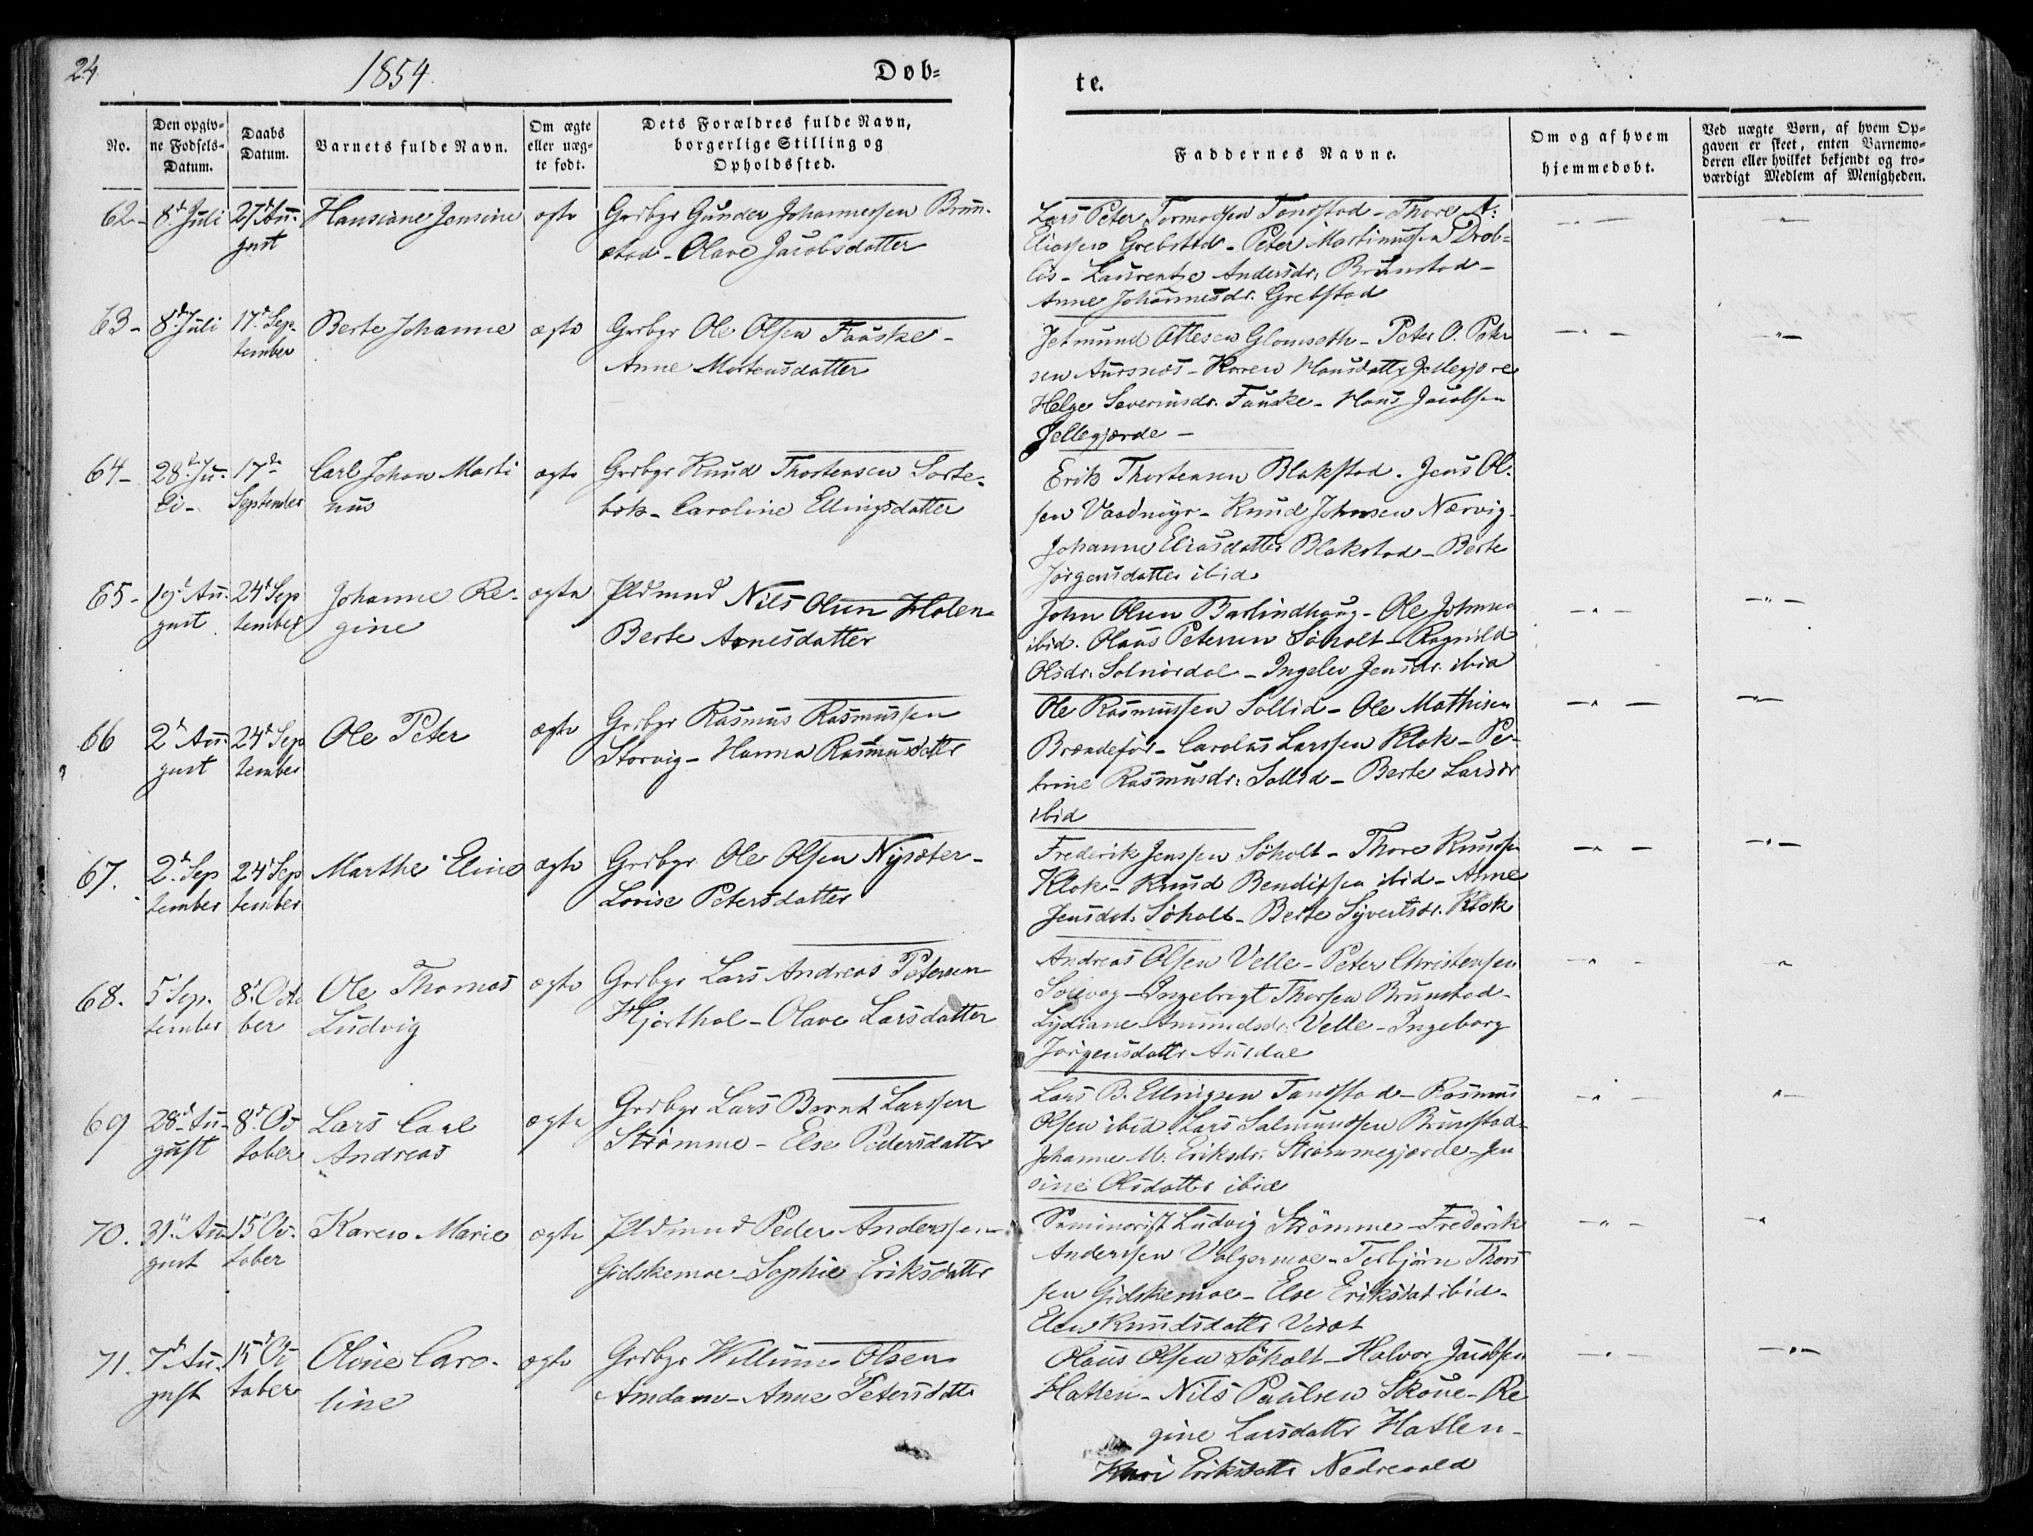 24
1854.
Døb=
te.
No.
Den opgiv=
ne Fødsels=
Datum.
Daabs
Datum.
Barnets fulde Navn.
Om ægte
eller uæg=
te født.
Dets Forældres fulde Navn,
borgerlige Stilling og
Opholdssted.
Faddernes Navne.
Om og af hvem
hjemmedøbt.
Ved uægte Børn, af hvem Op=
gaven er skeet, enten Barnemo=
deren eller hvilket bekjendt og tro=
værdigt Medlem af Menigheden.
62-
8d Juli
27d Au-
gust
Hansine Jensine
ægte
Grdbgr Gunder Johannessen Brun-
stad - Olave Jacobsdatter
Lars Peter Tormodsen Tandstad - Thore A:
Eliassen Grebstad - Peter Martinussen Drab-
løs - Laurentse Andersdr. Brunstad -
Anne Johannesdr. Grebstad
63-
8d Juli
17d Sep-
tember
Berte Johanne
ægte
Grdbgr Ole Olsen Fauske -
Anne Mortensdatter
Jetmund Ottesen Glomseth - Peter O. Peter
sen Aursnes - Karen Hansdatter Jellegjære
Helge Severinsdr. Fauske - Hans Jacobsen
Jellegjærde -
64-
28d Ju-
li-
17de
September
Carl Johan Marti
nus
ægte
Grdbgr Knud Thorstensen Sorte-
bok - Caroline Ellingsdatter
Erik Thorstensen Blakstad. Jens Ol-
sen Vaadmyr - Knud Johnsen Nærvig-
Johanne Eliasdatter Blakstad - Berte
Jørgensdatter ibid
65-
19d Au-
gust
24d Sep
tember
Johanne Re-
gine
ægte
Pldmnd Nils Olsen Holen-
Berte Arnesdatter
John Olsen Barlindhaug - Ole Johnsen
ibid. Olaus Petersen Søholt - Ragnild
Olsdr. Solnørdal - Ingelev Jensdr. ibid
66
2d Au
gust
24d Sep
tember
Ole Peter
ægte
Grdbgr Rasmus Rasmussen
Storvig - Hanna Rasmusdatter
Ole Rasmussen Sollid - Ole Mathisen
Brændefør - Carolus Larssen Klok - Pe-
trine Rasmusdr: Sollid - Berte Larsdr
ibid
67.
2d Sep
tember
24d Sep
tember
Marthe Eline
ægte
Grdbgr Ole Olsen Nysæter -
Lovise Petersdatter
Frederik Jenssen Søholt - Thore Knudsen
Klok - Knud Bendixsen ibid - Anne
Jensdat. Søholt - Berte Syvertsdr. Klok
68.
5 Sep.
tember
8d Octo
ber
Ole Thomas
Ludvig
ægte
Grdbgr Lars Andreas Petersen
Hjorthol - Olave Larsdatter
Andreas Olsen Velle - Peter Christensen
Solevog - Ingebrigt Thorsen Brunstad -
Lydiane Amundsdr. Velle - Ingeborg
Jørgensdattr Aurdal
69
28d Au-
gust
8d Oc
tober
Lars Carl
Andreas
ægte
Grdbgr Lars Bernt Larssen
Strømme - Else Pedersdatter
Lars B. Ellingsen Tandstad - Rasmus
Olsen ibid. Lars Salmundsen Brunstad-
Johanne M. Eriksdr: Strømmegjærde - Jen
sine Olsdatter ibid
70.
31te Au
gust
15d Oc-
tober
Karen Marie
ægte
Pldmnd Peder Anderssen
Gidskemoe - Sophie Eriksdatter
Seminarist Ludvig Strømme - Frederik
Anderssen Valgermoe - Torbjørn Thors
sen Gidskemoe - Else Eriksdat ibid -
Elen Knudsdatter
71.
7d Au-
gust
15d Oc
tober
Oline Caro-
line
ægte
Grdbgr Willum Olsen
Amdam - Anne Petersdattr
Olaus Olsen Søholt - Halvor Jacobsen
Hatlen - Nils Paulsen Skoue - Re
gine Larsdattr Hatlen -
Eriksdattr Nedrevold